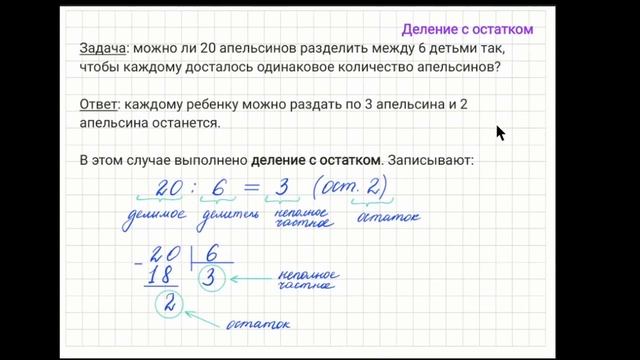 Деление с остатком
Задача: можно ли 20 апельсинов разделить между 6 детьми так,
чтобы каждому досталось одинаковое количество апельсинов?
Ответ: каждому ребенку можно раздать по 3 апельсина и 2
апельсина останется.
В этом случае выполнено деление с остатком. Записывают:
20 : 6 = 3 (ост. 2)
делимое делитель неполное частное остаток
- 20 6
18 3 неполное частное
2
остаток